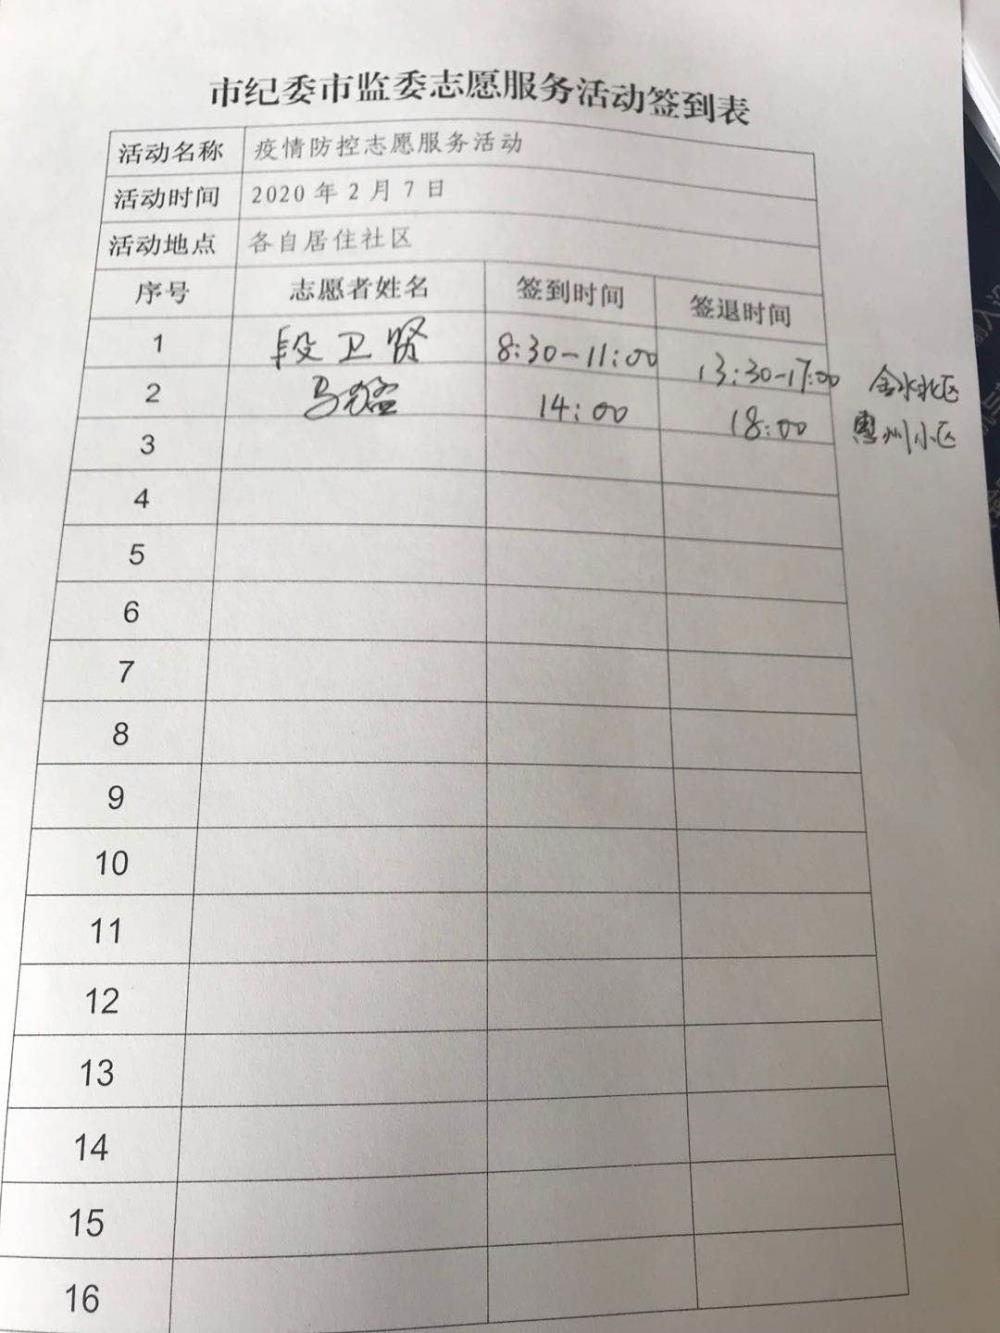 市纪委市监委志愿服务活动签到表
活动名称 疫情防控志愿服务活动
活动时间 2020年2月7日
活动地点 各自居住社区
序号 志愿者姓名 签到时间 签退时间
1 段卫贤 8:30-11:00 13:30-17:00 金水北区
2 马 14:00 18:00 惠州小区
3
4
5
6
7
8
9
10
11
12
13
14
15
16